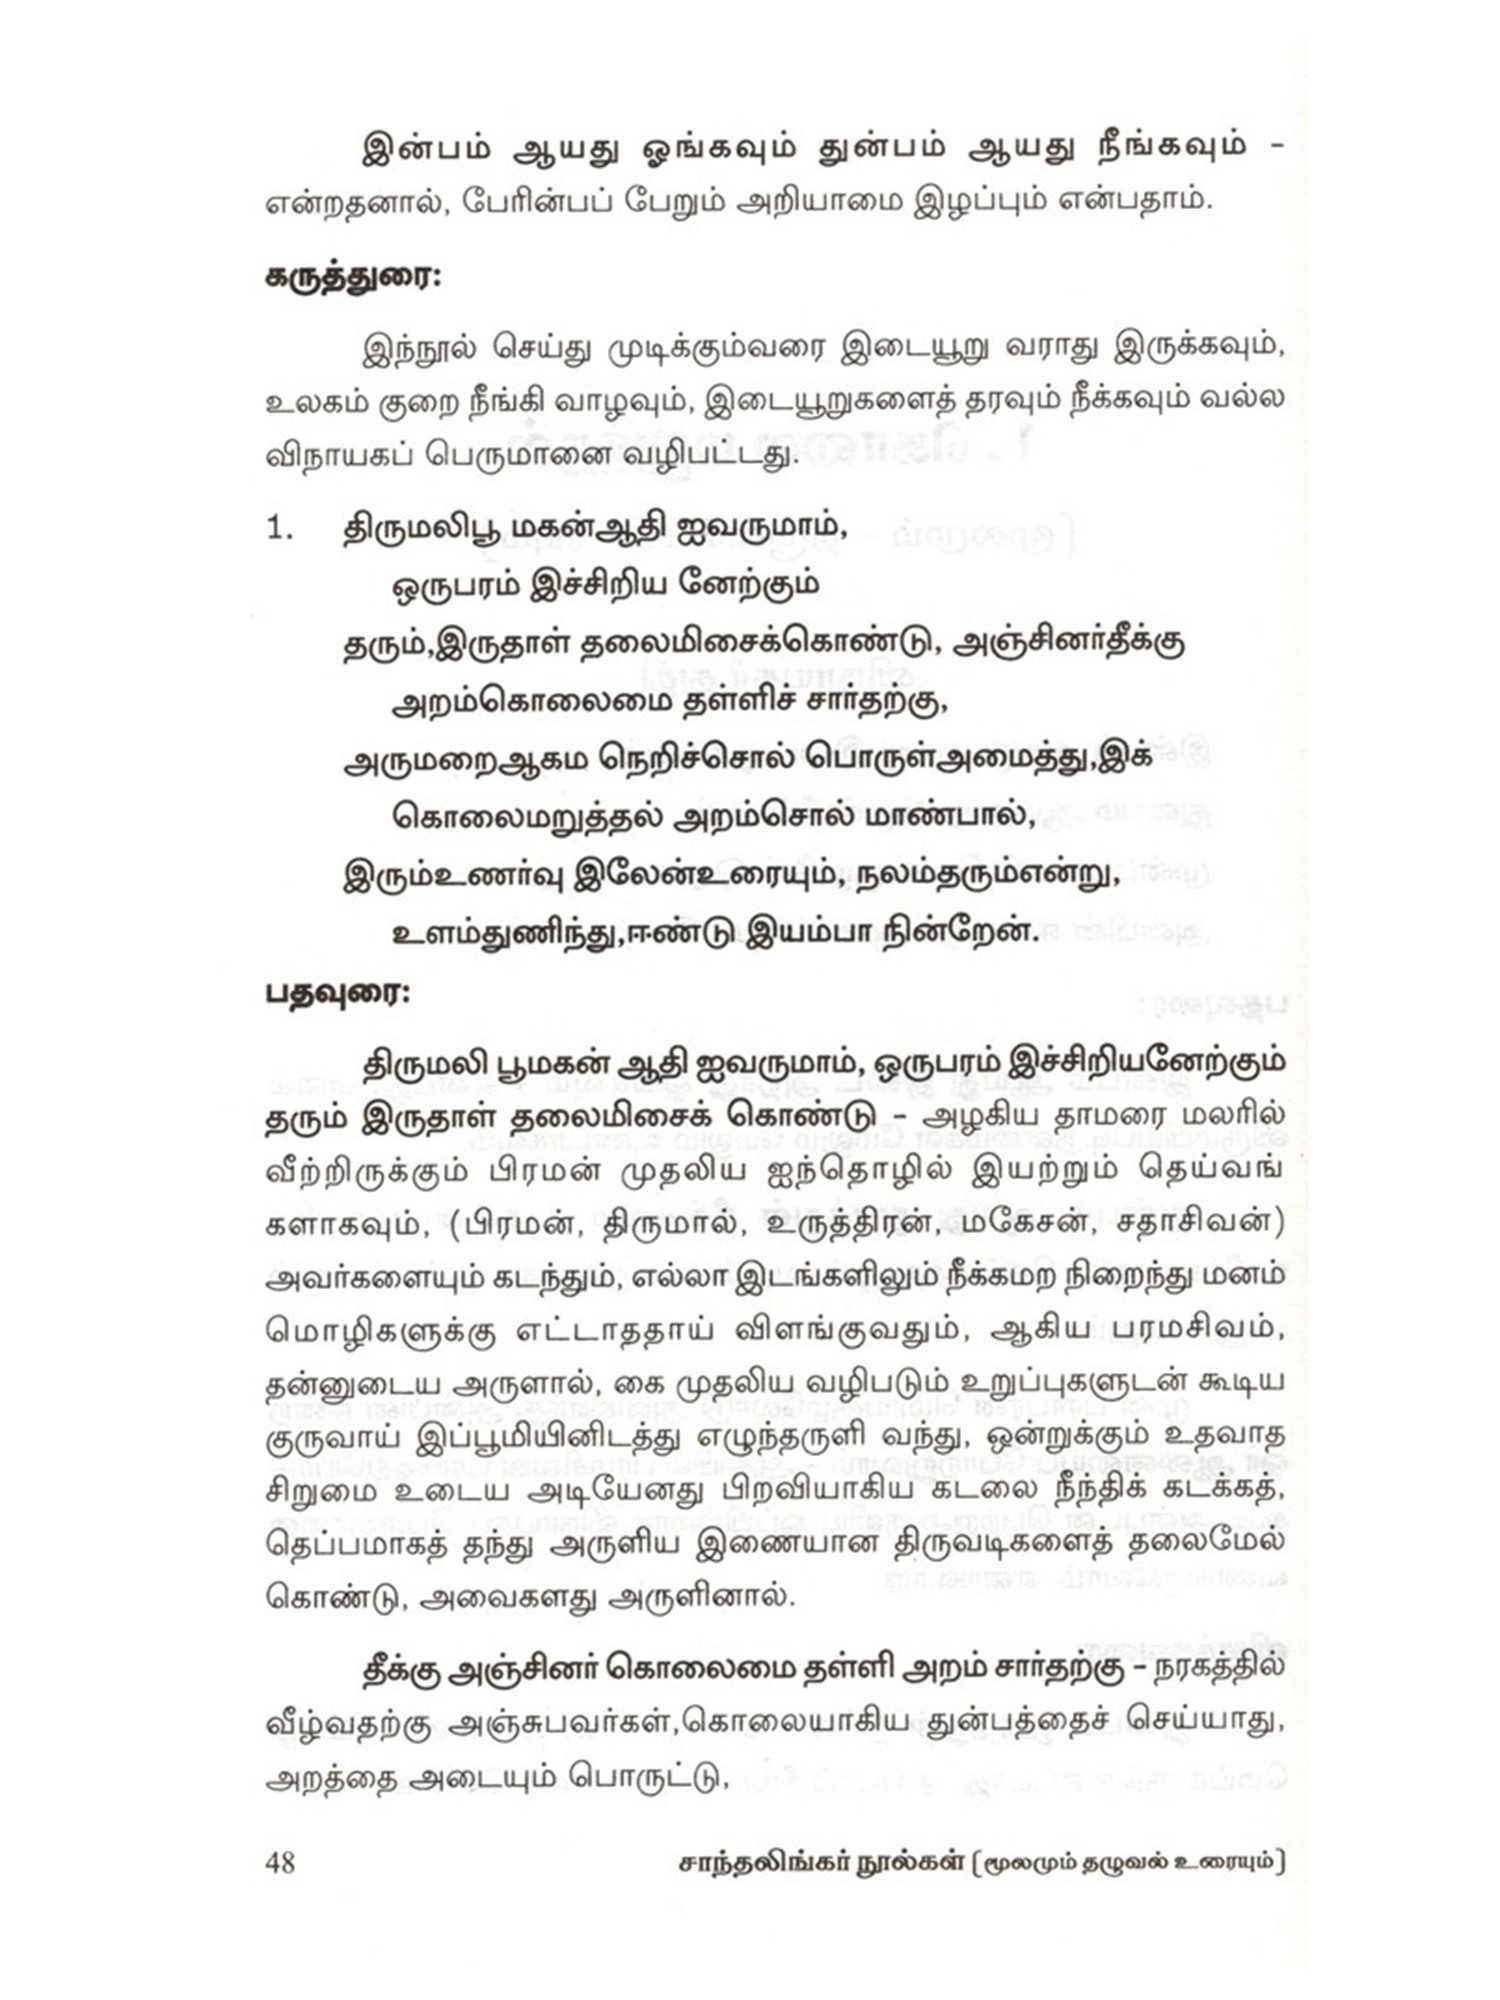 இன்பம் ஆயது ஓங்கவும் துன்பம் ஆயது நீங்கவும் -
என்றதனால், பேரின்பப் பேறும் அறியாமை இழப்பும் என்பதாம்.
கருத்துரை:
இந்நூல் செய்து முடிக்கும்வரை இடையூறு வராது இருக்கவும்,
உலகம் குறை நீங்கி வாழவும், இடையூறுகளைத் தரவும் நீக்கவும் வல்ல
விநாயகப் பெருமானை வழிபட்டது.
1. திருமலிபூ மகன்ஆதி ஐவருமாம்,
ஒருபரம் இச்சிறிய னேற்கும்
தரும்,இருதாள் தலைமிசைக்கொண்டு, அஞ்சினர்தீக்கு
அறம்கொலைமை தள்ளிச் சார்தற்கு,
அருமறைஆகம நெறிச்சொல் பொருள்அமைத்து,இக்
கொலைமறுத்தல் அறம்சொல் மாண்பால்,
இரும்உணர்வு இலேன்உரையும், நலம்தரும்என்று,
உளம்துணிந்து,ஈண்டு இயம்பா நின்றேன்.
பதவுரை:
திருமலி பூமகன் ஆதி ஐவருமாம், ஒருபரம் இச்சிறியனேற்கும்
தரும் இருதாள் தலைமிசைக் கொண்டு - அழகிய தாமரை மலரில்
வீற்றிருக்கும் பிரமன் முதலிய ஐந்தொழில் இயற்றும் தெய்வங்
களாகவும், (பிரமன், திருமால், உருத்திரன், மகேசன், சதாசிவன்)
அவர்களையும் கடந்தும், எல்லா இடங்களிலும் நீக்கமற நிறைந்து மனம்
மொழிகளுக்கு எட்டாததாய் விளங்குவதும், ஆகிய பரமசிவம்,
தன்னுடைய அருளால், கை முதலிய வழிபடும் உறுப்புகளுடன் கூடிய
குருவாய் இப்பூமியினிடத்து எழுந்தருளி வந்து, ஒன்றுக்கும் உதவாத
சிறுமை உடைய அடியேனது பிறவியாகிய கடலை நீந்திக் கடக்கத்,
தெப்பமாகத் தந்து அருளிய இணையான திருவடிகளைத் தலைமேல்
கொண்டு, அவைகளது அருளினால்.
தீக்கு அஞ்சினர் கொலைமை தள்ளி அறம் சார்தற்கு - நரகத்தில்
வீழ்வதற்கு அஞ்சுபவர்கள்,கொலையாகிய துன்பத்தைச் செய்யாது,
அறத்தை அடையும் பொருட்டு,
48 சாந்தலிங்கர் நூல்கள் (மூலமும் தழுவல் உரையும்)